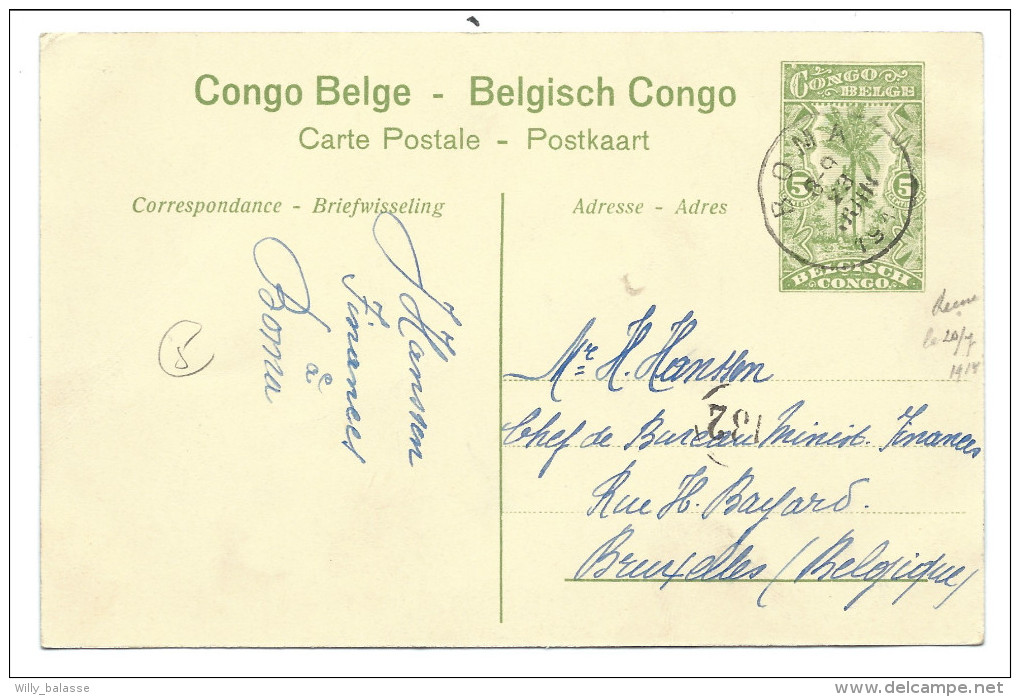 Congo Belge - Belgisch Congo
Carte Postale - Postkaart
Correspondance - Briefwisseling
Adresse - Adres
CONGO
BELGE
5
5
BELGISCH
CONGO
BOMA
8-9
JUIN
Hanssen
Finances
à
Boma
5
le 20/7
Mr. H. Hanssen
132
Chef de Bureau Minist. Finances
Rue H. Bayard.
Bruxelles (Belgique)
Willy_balasse
delcampe.net